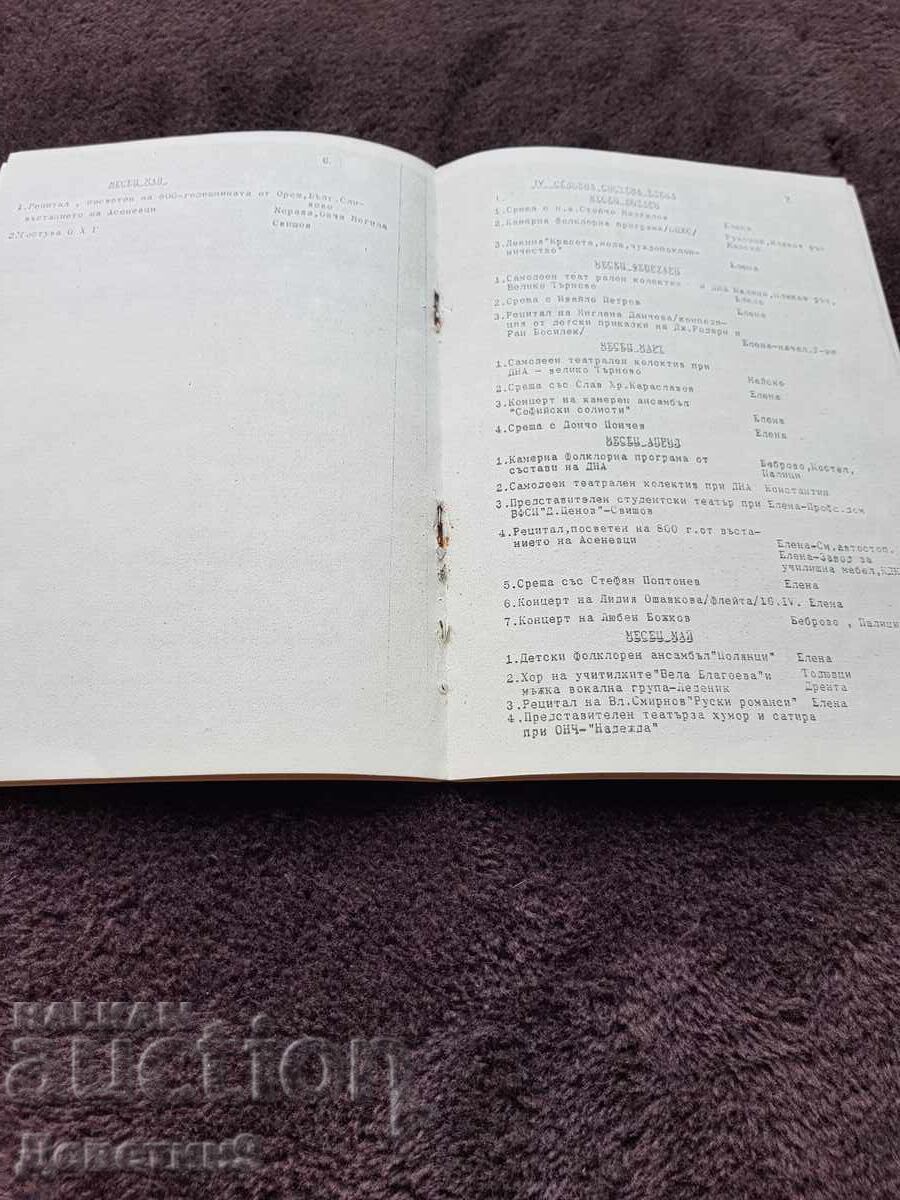 6.
МЕСЕЦ МАЙ
1.Рецитал , посветен на 800-годишнината от Ореш,Бълг.Сли-
въстанието на Асеневци ково
Морава,Овча Могила
2.Гостува О Х Г Свищов
7.
IV СЕЛИЩНА СИСТЕМА ЕЛЕНА
МЕСЕЦ ЯНУАРИ
1.Среща с н.а.Стойчо Мазгалов Елена
2.Камерна фолклорна програма
3.Лекция"Красота,мода,чуждопоклон-
ничество" Елена
МЕСЕЦ ФЕВРУАРИ
1.Самодеен театрален колектив
Велико Търново
2.Среща с Ивайло Петров Елена
3.Рецитал на Миглена Данчева/компози- Елена
ция от детски приказки на Дж.Родари и
Ран Босилек/ Елена-начал.
МЕСЕЦ МАРТ
1.Самодеен театрален колектив при
ДНА – велико Търново Майско
2.Среща със Слав Хр.Караславов Елена
3.Концерт на камерен ансамбъл
"Софийски солисти" Елена
4.Среща с Дончо Цончев Елена
МЕСЕЦ АПРИЛ
1.Камерна Фолклорна програма от Беброво,Костел,
състави на ДНА Палици
2.Самодеен театрален колектив при ДНА Константин
3.Представителен студентски театър при Елена-Профс.дом
ВФСИ"Д.Ценов"-Свищов
4.Рецитал,посветен на 800 г.от въста-
нието на Асеневци Елена-См.автостоп.
Елена-Завод за
училищна мебел,
5.Среща със Стефан Поптонев Елена
6.Концерт на Лидия Ошавкова/флейта/16.IV. Елена
7.Концерт на Любен Божков Беброво , Палици
МЕСЕЦ МАЙ
1.Детски Фолклорен ансамбъл"Полянци" Елена
2.Хор на учителките"Вела Благоева"и Тодювци
мъжка вокална група-Леденик Дрента
3.Рецитал на Вл.Смирнов"Руски романси" Елена
4.Представителен театърза хумор и сатира
при ОНЧ-"Надежда"
BALKAN
auction
Доветин9